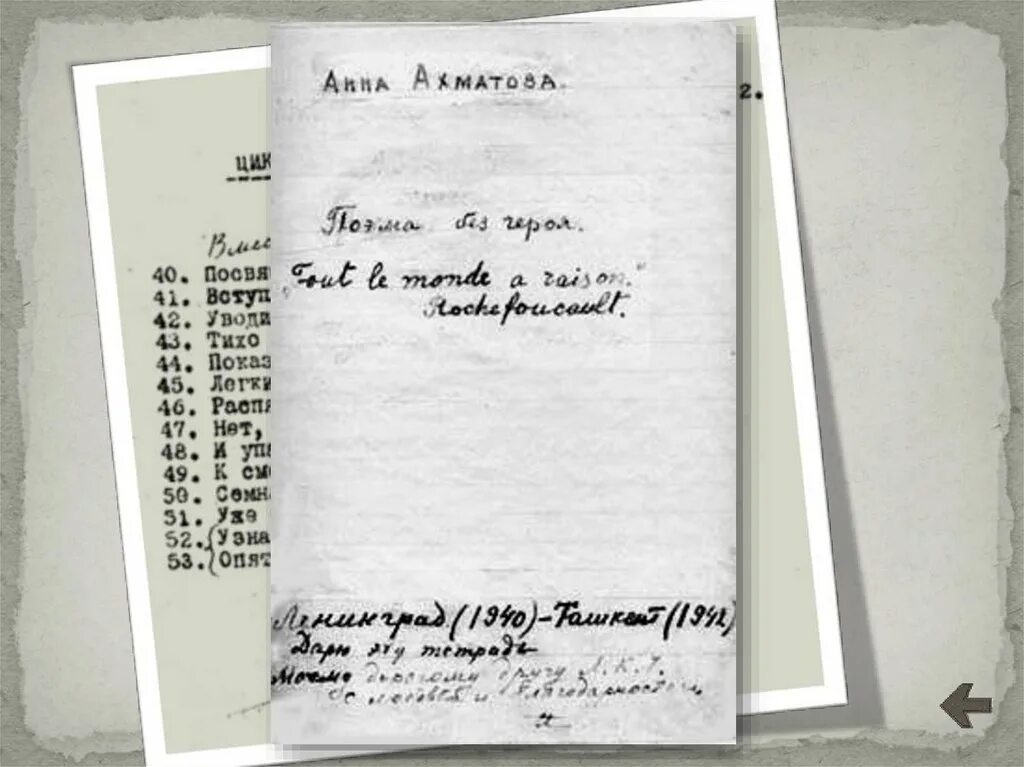 Анна Ахматова.
Поэма без героя.
„Tout le monde a raison."
Rochefoucault.
Ленинград (1940) – Ташкент (1942)
Дарю эту тетрадь
Моему дорогому другу Л. К. Ч.
с любовью и благодарностью
2.
ЦИК
Вмес
40. Посвя
41. Вступ
42. Уводи
43. Тихо
44. Показ
45. Легки
46. Распя
47. Нет,
48. И упа
49. К сме
50. Семна
51. Уже
52. Узна
53. Опят